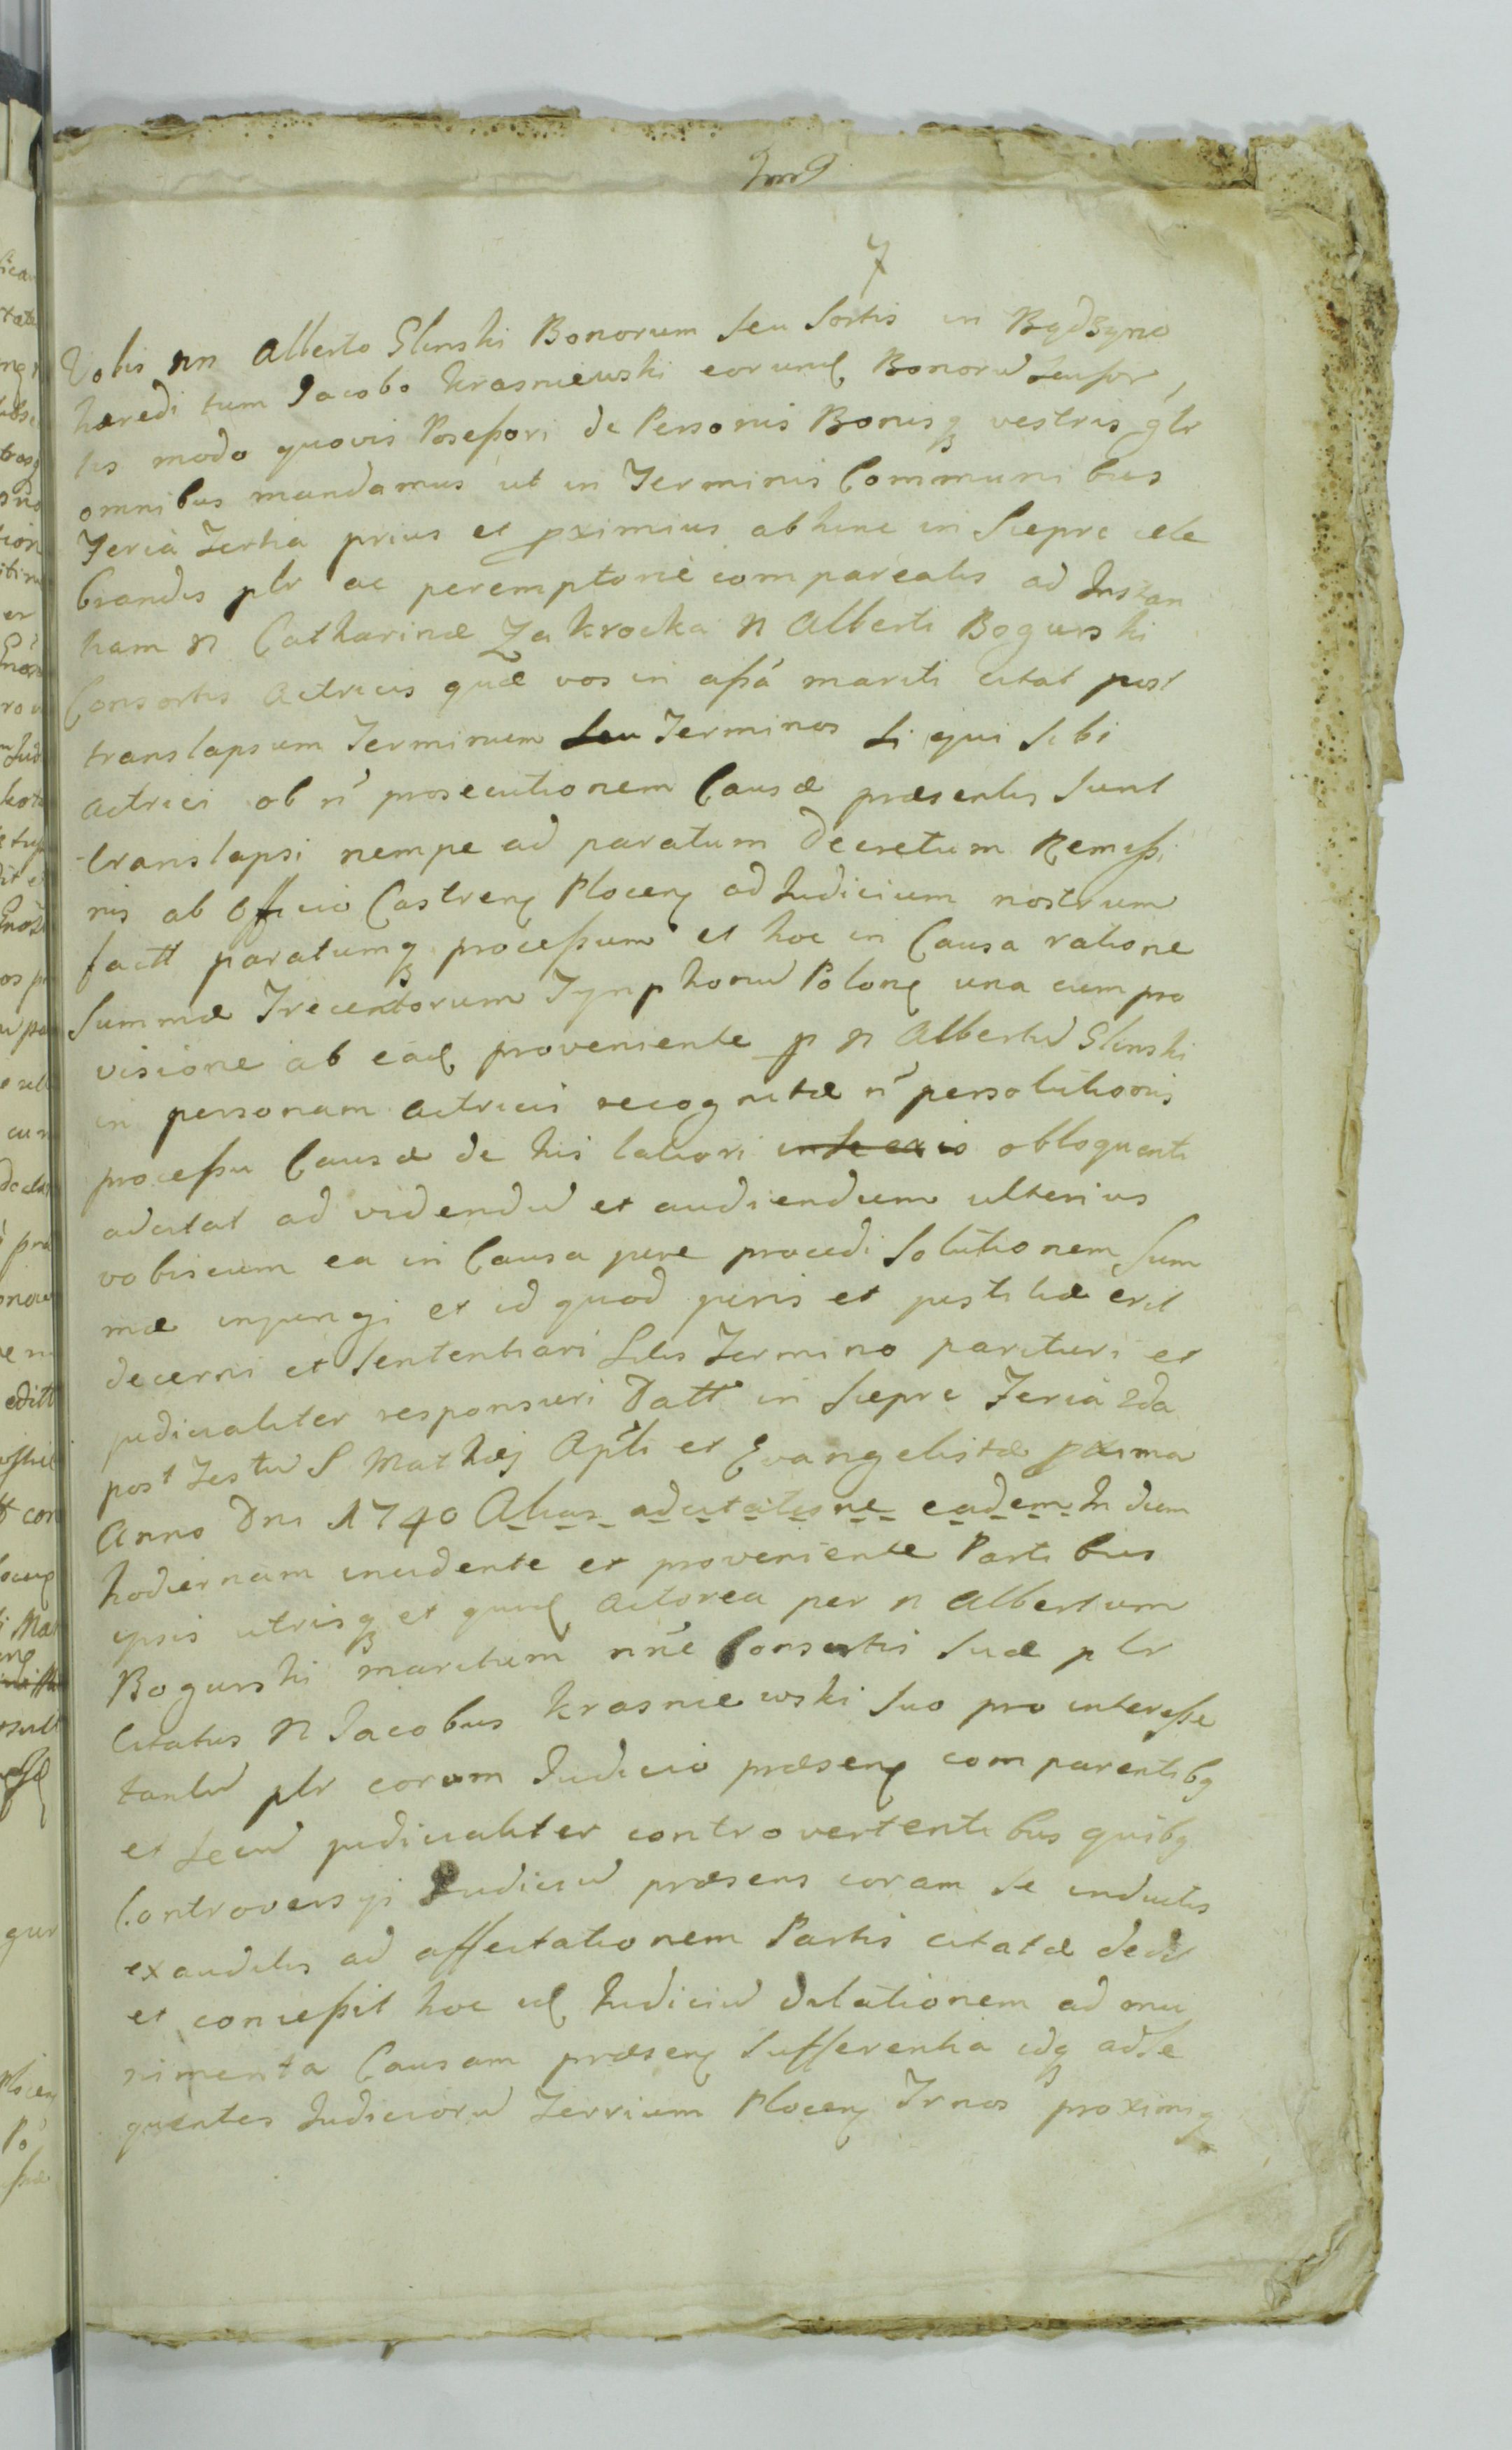 7
Vobis nn Alberto Glinski Bonorum seu Sortis in Bądzyno
hæredi tum Jacobo Krasniewski eorund Bonorū seu for,
tis modo quovis Poseßori de Personis Bonisq vestris glr
omnibus mandamus ut in Terminis Communibus
Feria Tertia prius et pximius abhinc in Sieprc cele
brandis plr ac peremptorie compareatis ad Instan
tiam n Catharinæ Zakrocka n Alberti Bogurski
Consortis Actricis quæ vos in aßa mariti citat post
translapsum Terminum seu Terminos si qui sibi
actrici ob n prosecutionem Causæ præsentis sunt
translapsi nempe ad paratum Decretum Remißi
nis ab Officio Castren Plocen ad Judicium nostrum
factt paratumq proceßum et hoc in Causa ratione
Summæ Trecentorum Tynphonū Polon una cum pro
visione ab ead proveniente p n Albertū Glinski
in personam actricis recognitæ n persolutionis
proceßu Causæ de his latiori obloquenti
adcitat ad videndū et audiendum ulterius
vobiscum ea in Causa jure procedi solutionem Sum
mæ injungi et id quod juris et justitiæ erit
decerni et sententiari sitis Termino parituri et
judicialiter responsuri Datt in Sieprc Feria 2da
post Festū S Mathæj Apli et Evangelistæ pxima
Anno Dni 1740 Alias adcitatione eadem In diem
hodiernam incidente et proveniente Partibus
ipsis utrisq et quid Actorea per n Albertum
Bogurski maritum nne Consortis suæ plr
Citatus n Jacobus Krasniewski suo pro intereße
tantū plr coram Judicio præsen comparentibq
et secū judicialiter controvertentibus quibq
Controversji Judiciū præsens coram se inductis
exauditis ad affectationem Partis citatæ dedit
et conceßit hoc id Judiciū dilationem ad mu
nimenta Causam præsen sufferentia idq ad se
quentes Judiciorū Terrium Plocen Trnos proximq